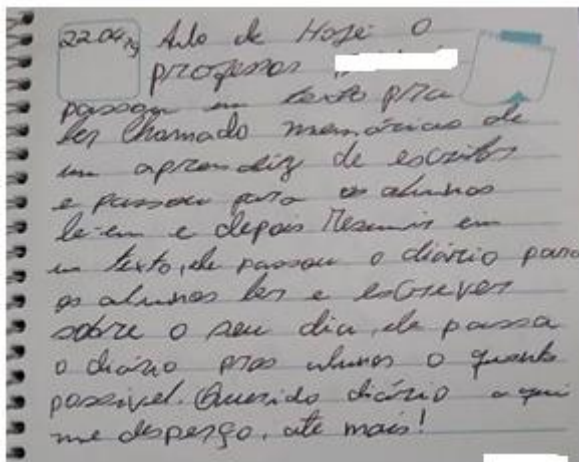 22.04.19 Aula de Hoje O
professor
passou um texto pra
ler Chamado memórias de
um aprendiz de escritor
e passou para os alunos
le-em e depois Resumir em
um texto, ele passou o diário para
os alunos ler e escrever
sobre o seu dia, ele passa
o diário pros alunos o quanto
possivel. Querido diário a qui
me desperço, ate mais!